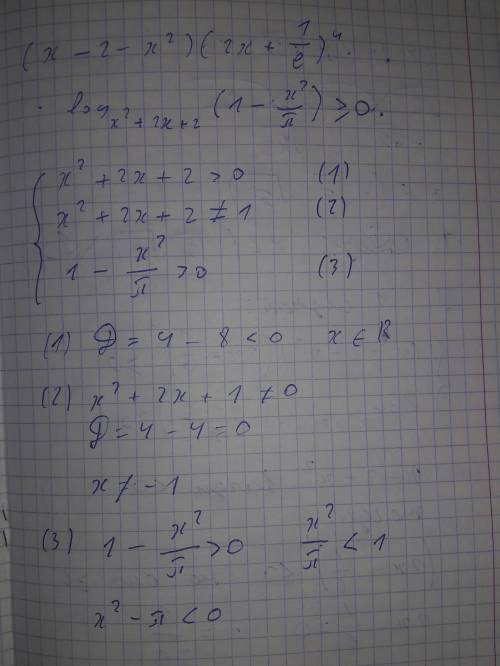 (x - 2 - x²)(2x + 1/e)⁴ ·
· log_{x²+2x+2} (1 - x²/π) ≥ 0.
{ x² + 2x + 2 > 0 (1)
x² + 2x + 2 ≠ 1 (2)
1 - x²/π > 0 (3)
(1) D = 4 - 8 < 0 x ∈ R
(2) x² + 2x + 1 ≠ 0
D = 4 - 4 = 0
x ≠ -1
(3) 1 - x²/π > 0 x²/π < 1
x² - π < 0